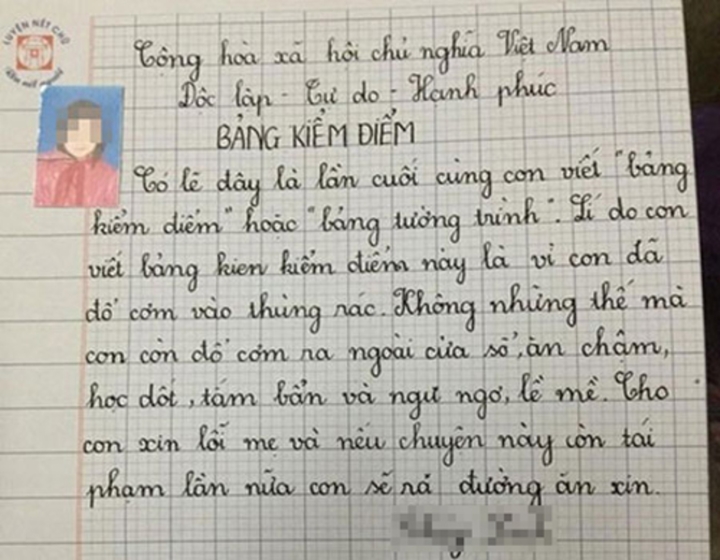 LUYỆN NÉT CHỮ
Cộng hoà xã hội chủ nghĩa Việt Nam
Dộc lập - Tự do - Hạnh phúc
BẢNG KIỂM ĐIỂM
Có lẽ dây là lần cuối cùng con viết "bảng
kiểm diểm" hoặc "bảng tường trình". Lí do con
viết bảng kien kiểm điểm này là vì con đã
dổ cơm vào thùng rác. Không nhừng thế mà
con còn dổ cơm ra ngoài cửa sổ, ăn chậm,
học dốt, tắm bẩn và ngu ngơ, lề mề. Cho
con xin lỗi mẹ và nếu chuyện này còn tái
phạm lần nữa con sẽ rả đường ăn xin.